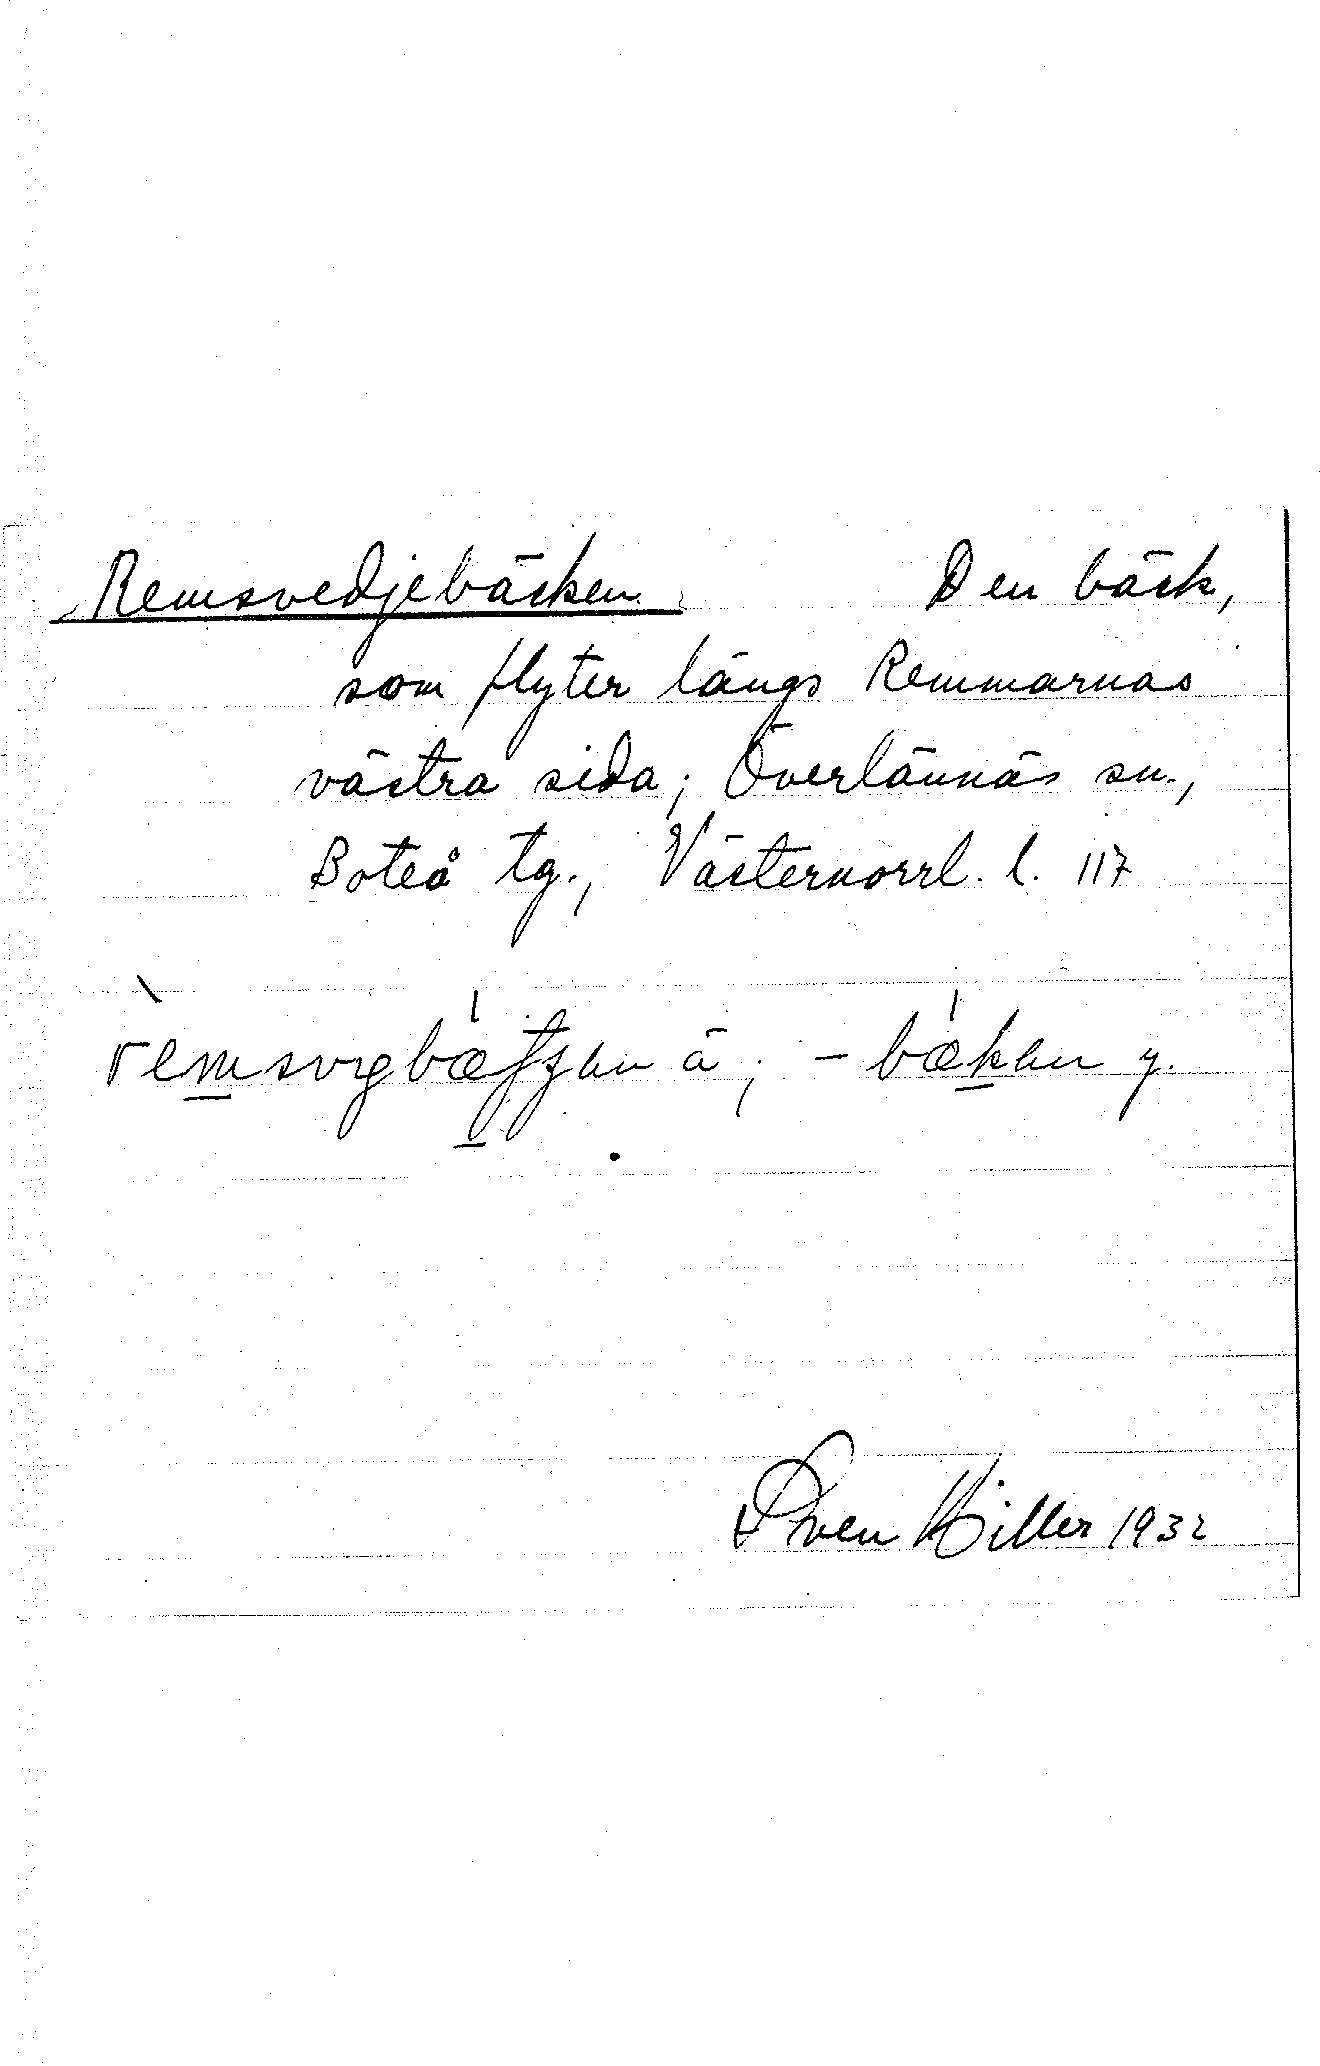 Remsvedjebäcken. Den bäck,
som flyter längs Remmarnas
västra sida; Överlännäs sn.,
Boteå tg., Västernorrl. l. 117
ä; - bækan y.
Sven Hiller 1932